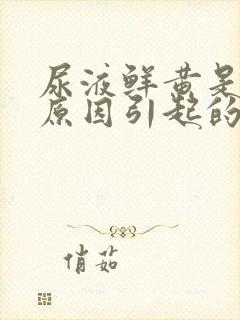 尿液鲜黄是
原因引起的
俏茹